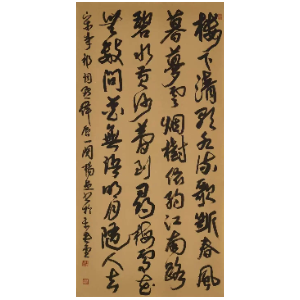 樓下清歌水流歌斷春風
暮夢雲烟樹依約江南路
碧水黃沙夢到尋梅處花
無數問花無語明月隨人去
宋李祁詞點絳唇一闋